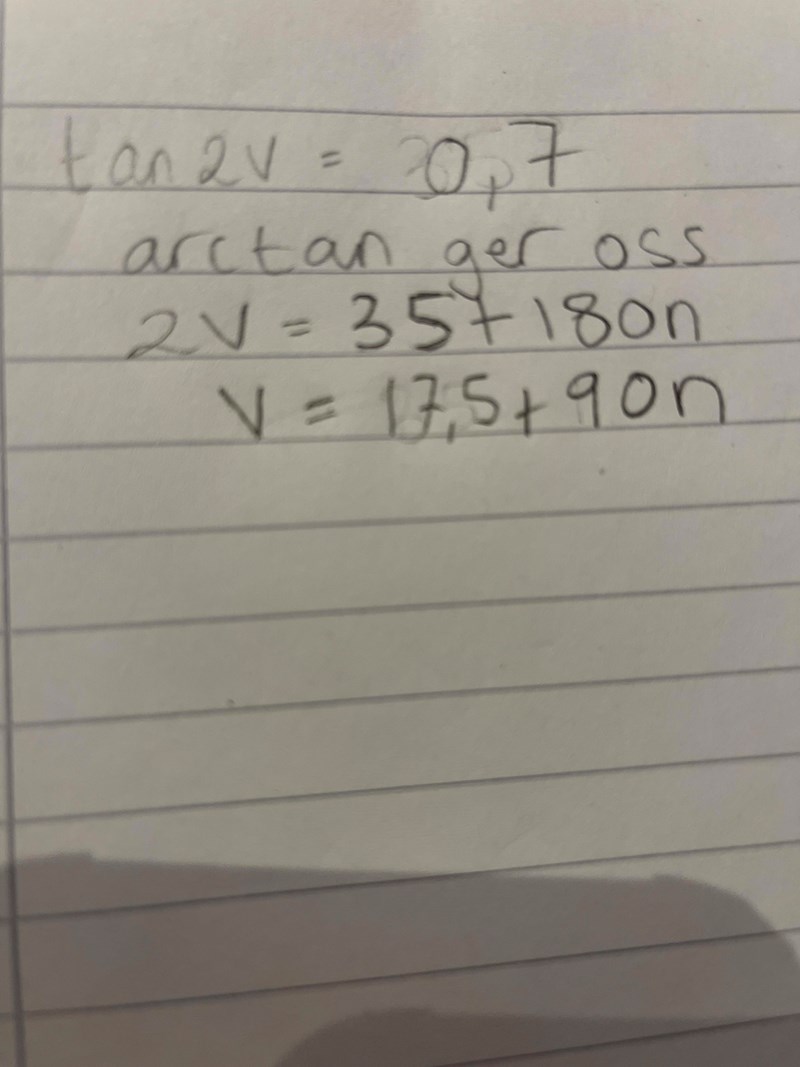 tan 2v = 0,7
arctan ger oss
2v = 35+180n
v = 17,5+90n